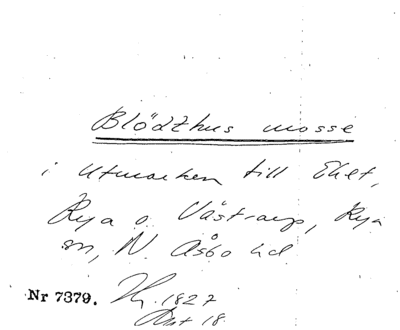 Blödthus mosse
i utmarken till Ehet,
Rya o. Västraup, Rya
sn, N. Åsbo hd
Nr 7379. 1827
18